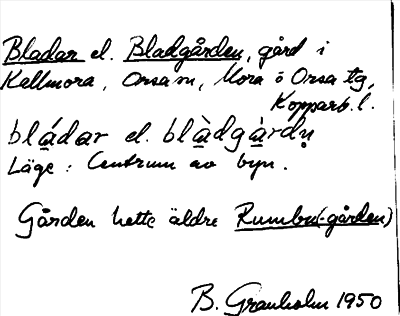 Bladar el. Bladgården, gård i
Kallmora, Orsa sn, Mora o Orsa tg,
Kopparb. l.
bládar el. blàdgàrdṇ
Läge: Centrum av byn.
Gården hette äldre Rumbu(-gården)
B. Granholm 1950